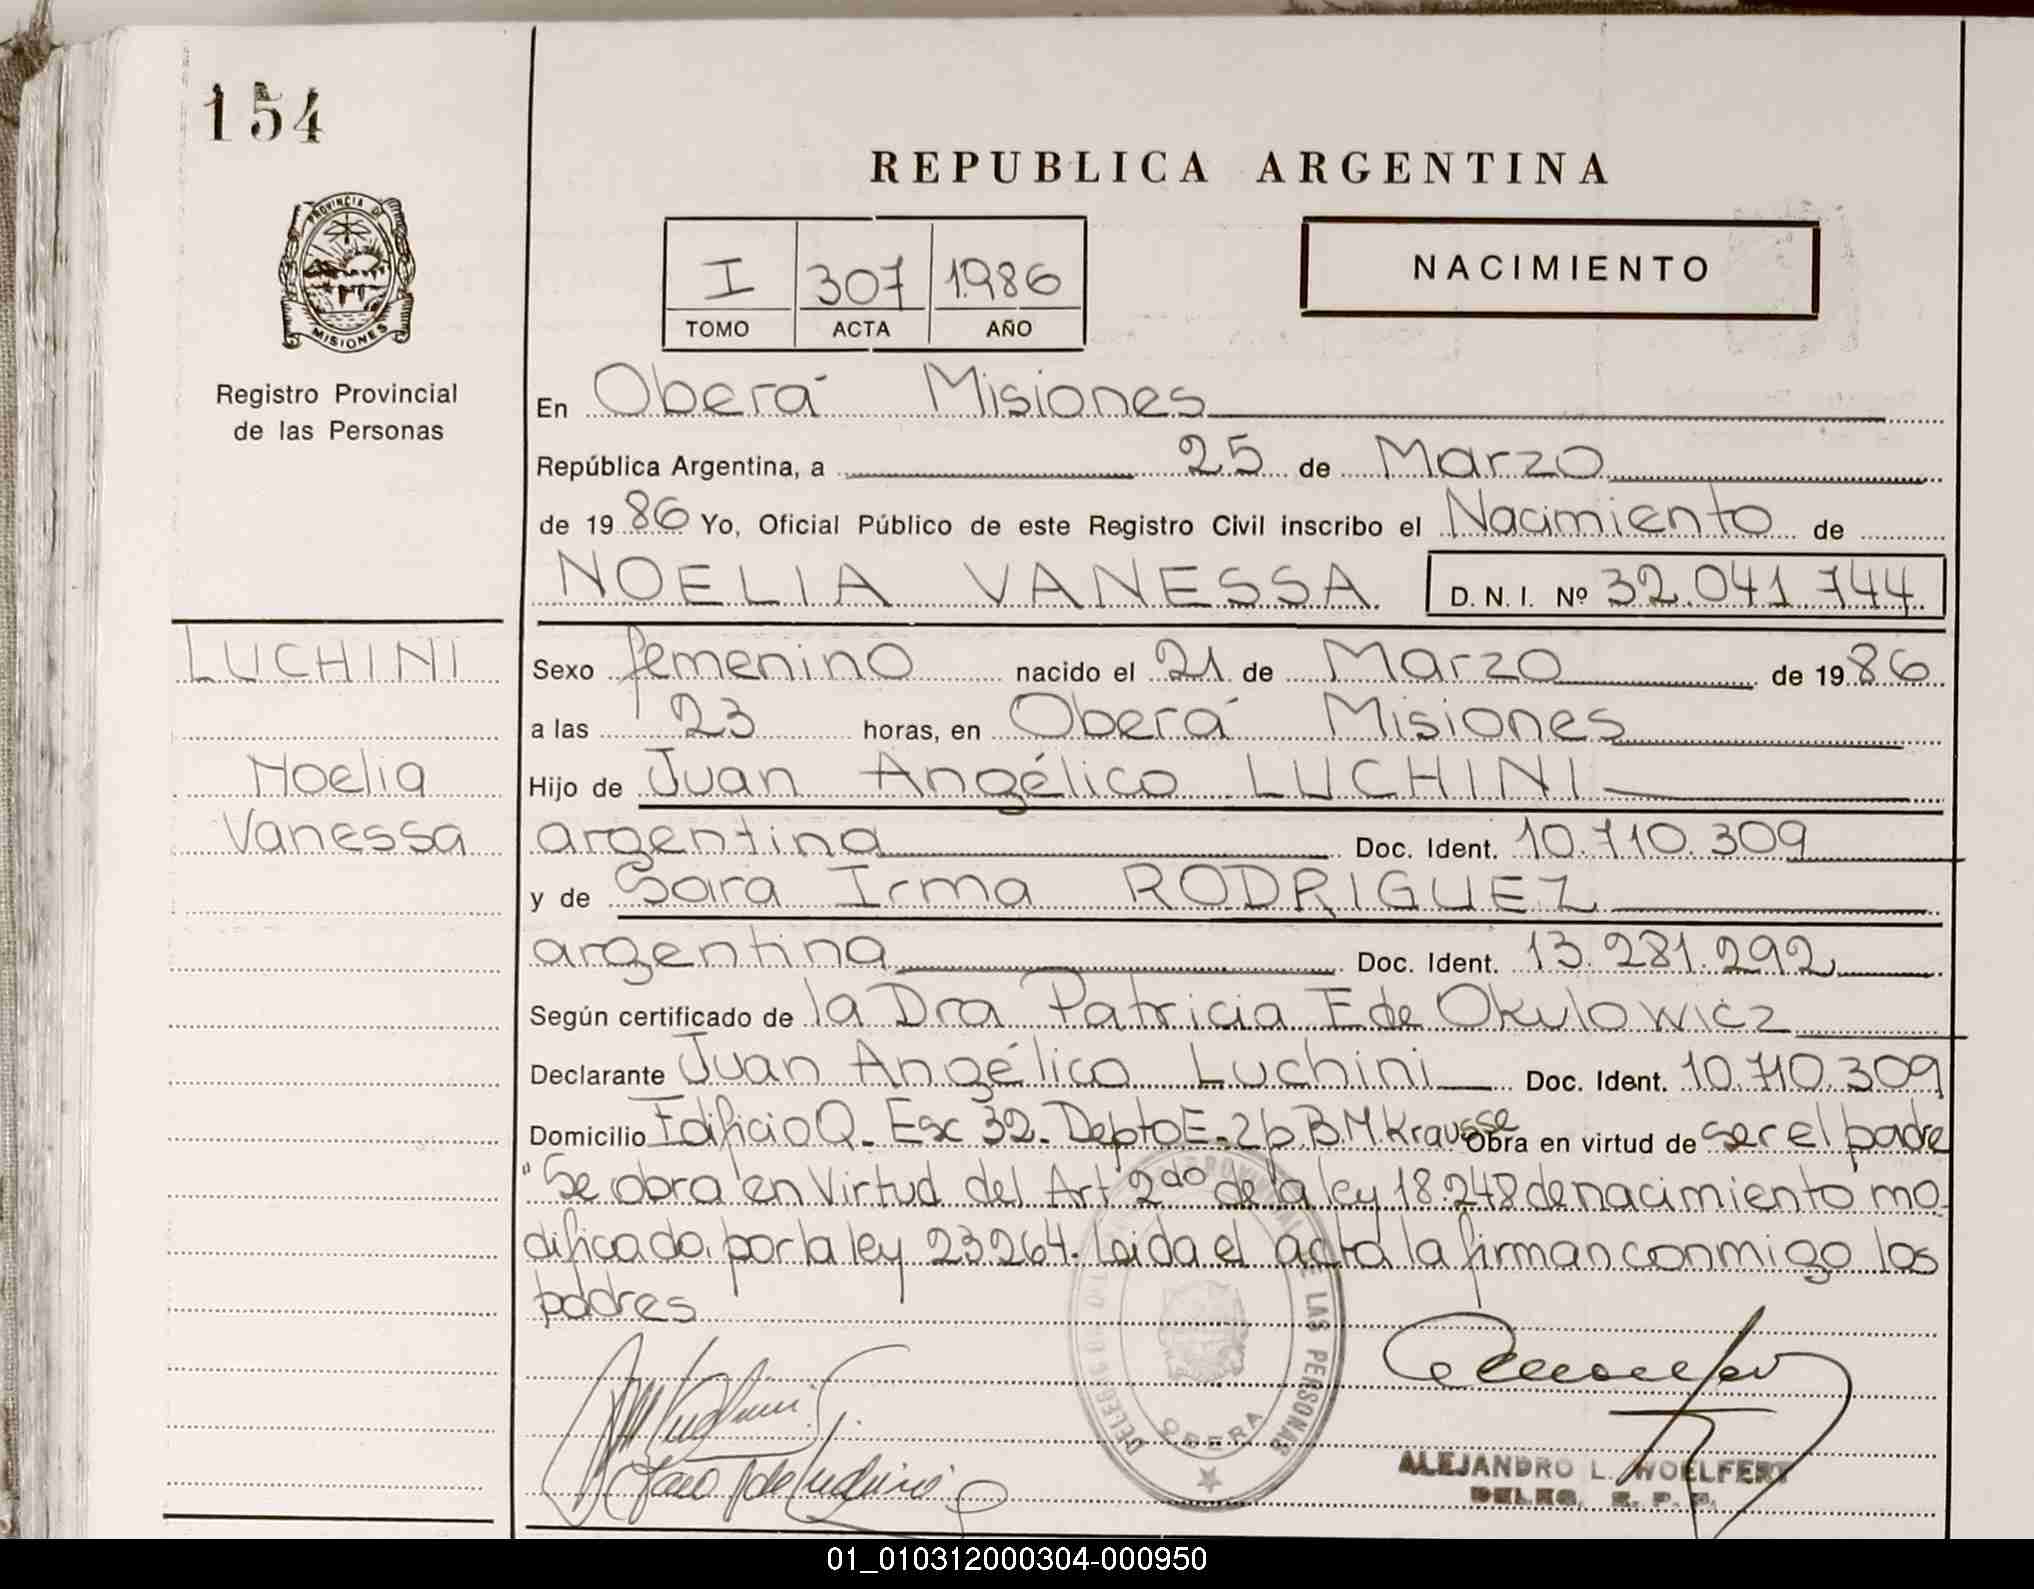 154
REPUBLICA ARGENTINA
PROVINCIA DE
MISIONES
Registro Provincial
de las Personas
I 307 1986
TOMO ACTA AÑO
NACIMIENTO
En Oberá Misiones
República Argentina, a 25 de Marzo
de 1986 Yo, Oficial Público de este Registro Civil inscribo el Nacimiento de
NOELIA VANESSA D. N. I. Nº 32.041.744
LUCHINI
Noelia
Vanessa
Sexo femenino nacido el 21 de Marzo de 1986
a las 23 horas, en Oberá Misiones
Hijo de Juan Angélico LUCHINI
argentina Doc. Ident. 10.710.309
y de Sara Irma RODRIGUEZ
argentina Doc. Ident. 13.281.292
Según certificado de la Dra Patricia F de Okulowicz
Declarante Juan Angélico Luchini Doc. Ident. 10.710.309
Domicilio Edificio Q. Esc 32. Depto E. 2p. B. M. Krausse Obra en virtud de ser el padre
"Se obra en Virtud del Art 2do de la ley 18.248 de nacimiento mo-
dificada por la ley 23.264. Leida el acta la firman conmigo los
padres
DE LAS PERSONAS
OBERA
ALEJANDRO L. WOELFERT
DELEG. R. P. P.
01_010312000304-000950